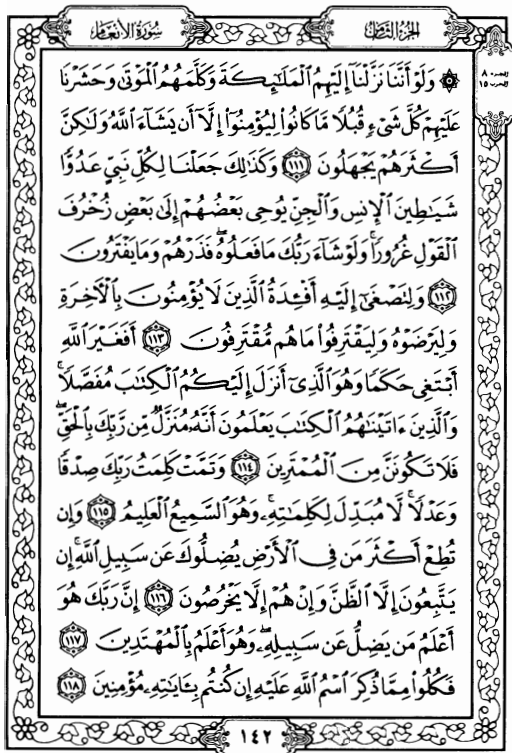 سُورَةُ الأَنْعَامِ
الجُزءُ الثَّامِنُ
الجزء ٨
الحزب ١٥
۞ وَلَوْ أَنَّنَا نَزَّلْنَآ إِلَيْهِمُ ٱلْمَلَٰٓئِكَةَ وَكَلَّمَهُمُ ٱلْمَوْتَىٰ وَحَشَرْنَا
عَلَيْهِمْ كُلَّ شَىْءٍ قُبُلًا مَّا كَانُوا۟ لِيُؤْمِنُوٓا۟ إِلَّآ أَن يَشَآءَ ٱللَّهُ وَلَٰكِنَّ
أَكْثَرَهُمْ يَجْهَلُونَ ١١١ وَكَذَٰلِكَ جَعَلْنَا لِكُلِّ نَبِىٍّ عَدُوًّا
شَيَٰطِينَ ٱلْإِنسِ وَٱلْجِنِّ يُوحِى بَعْضُهُمْ إِلَىٰ بَعْضٍ زُخْرُفَ
ٱلْقَوْلِ غُرُورًا ۚ وَلَوْ شَآءَ رَبُّكَ مَا فَعَلُوهُ ۖ فَذَرْهُمْ وَمَا يَفْتَرُونَ
١١٢ وَلِتَصْغَىٰٓ إِلَيْهِ أَفْـِٔدَةُ ٱلَّذِينَ لَا يُؤْمِنُونَ بِٱلْءَاخِرَةِ
وَلِيَرْضَوْهُ وَلِيَقْتَرِفُوا۟ مَا هُم مُّقْتَرِفُونَ ١١٣ أَفَغَيْرَ ٱللَّهِ
أَبْتَغِى حَكَمًا وَهُوَ ٱلَّذِىٓ أَنزَلَ إِلَيْكُمُ ٱلْكِتَٰبَ مُفَصَّلًا ۚ
وَٱلَّذِينَ ءَاتَيْنَٰهُمُ ٱلْكِتَٰبَ يَعْلَمُونَ أَنَّهُۥ مُنَزَّلٌ مِّن رَّبِّكَ بِٱلْحَقِّ ۖ
فَلَا تَكُونَنَّ مِنَ ٱلْمُمْتَرِينَ ١١٤ وَتَمَّتْ كَلِمَتُ رَبِّكَ صِدْقًا
وَعَدْلًا ۚ لَّا مُبَدِّلَ لِكَلِمَٰتِهِۦ ۚ وَهُوَ ٱلسَّمِيعُ ٱلْعَلِيمُ ١١٥ وَإِن
تُطِعْ أَكْثَرَ مَن فِى ٱلْأَرْضِ يُضِلُّوكَ عَن سَبِيلِ ٱللَّهِ ۚ إِن
يَتَّبِعُونَ إِلَّا ٱلظَّنَّ وَإِنْ هُمْ إِلَّا يَخْرُصُونَ ١١٦ إِنَّ رَبَّكَ هُوَ
أَعْلَمُ مَن يَضِلُّ عَن سَبِيلِهِۦ ۖ وَهُوَ أَعْلَمُ بِٱلْمُهْتَدِينَ ١١٧
فَكُلُوا۟ مِمَّا ذُكِرَ ٱسْمُ ٱللَّهِ عَلَيْهِ إِن كُنتُم بِـَٔايَٰتِهِۦ مُؤْمِنِينَ ١١٨
١٤٢